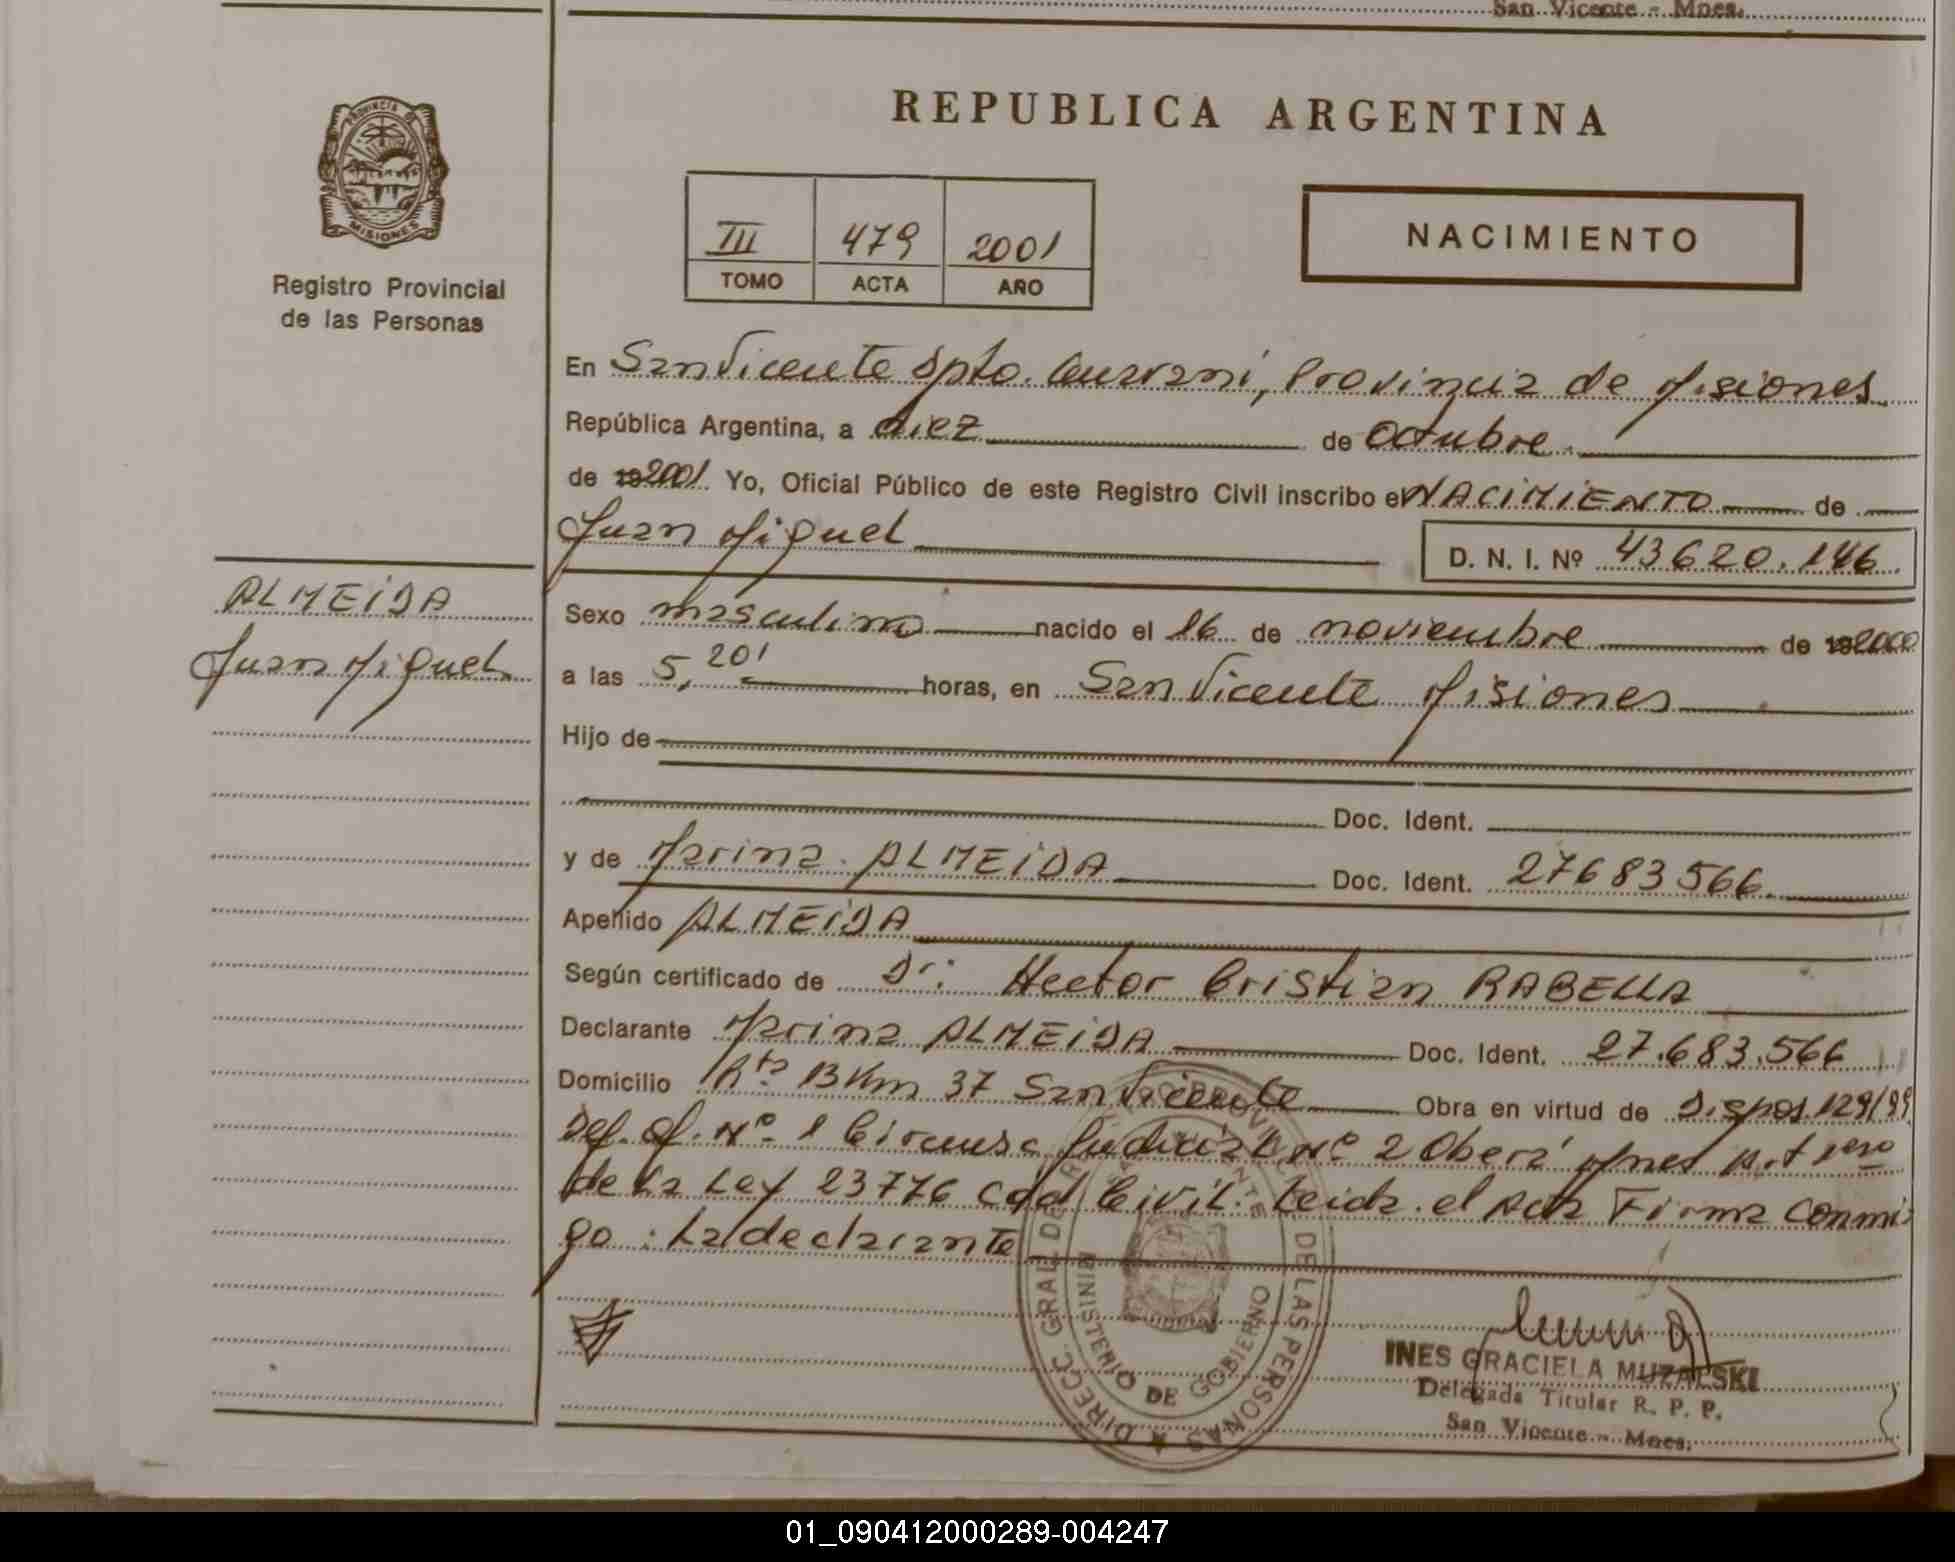 San Vicente - Mnes.
REPUBLICA ARGENTINA
PROVINCIA DE
MISIONES
Registro Provincial
de las Personas
III 479 2001
TOMO ACTA AÑO
NACIMIENTO
En San Vicente Dpto. Guaraní, Provincia de Misiones
República Argentina, a diez de Octubre
de 192001 Yo, Oficial Público de este Registro Civil inscribo el NACIMIENTO de
Juan Miguel D. N. I. Nº 43620.146
ALMEIDA
Juan Miguel
Sexo masculino nacido el 16 de noviembre de 192000
a las 5,20' horas, en San Vicente Misiones
Hijo de
Doc. Ident.
y de Marina ALMEIDA Doc. Ident. 27683566
Apellido ALMEIDA
Según certificado de Dr: Hector Cristian RABELLA
Declarante Marina ALMEIDA Doc. Ident. 27.683.566
Domicilio Rta 13 Km 37 San Vicente Obra en virtud de Dispos. 129/99
Def. Of. Nº 1 Circunsc. Judicial Nº 2 Oberá Mnes Art 1ero
de la Ley 23776 Cod Civil. Leida el Acta Firma conmi-
go: La declarante
DIRECC. GRAL. DEL DE LAS PERSONAS
MINISTERIO DE GOBIERNO
INES GRACIELA MUZALSKI
Delegada Titular R. P. P.
San Vicente - Mnes.
01_090412000289-004247